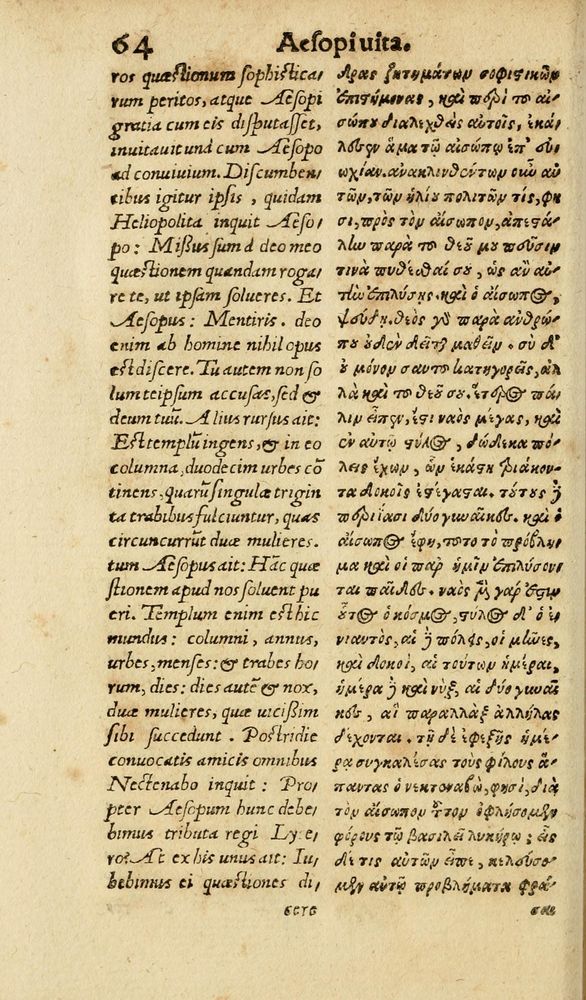 64 Aesopi uita.
ros quæstionum sophistica/
rum peritos, atque Aesopi
gratia cum eis disputasset,
inuitauit unà cum Aesopo
ad conuiuium. Discumben/
tibus igitur ipsis, quidam
Heliopolita inquit Aeso/
po: Missus sum à deo meo
quæstionem quandam roga/
re te, ut ipsam solueres. Et
Aesopus: Mentiris. deo
enim ab homine nihil opus
est discere. Tu autem non so
lum teipsum accusas, sed &
deum tuũ. Alius rursus ait:
Est templũ ingens, & in eo
columna, duodecim urbes cõ
tinens, quarũ singulæ trigin
ta trabibus fulciuntur, quas
circuncurrũt duæ mulieres.
tum Aesopus ait: Hãc quæ
stionem apud nos soluent pu
eri. Templum enim est hic
mundus: columni, annus,
urbes, menses: & trabes ho/
rum, dies: dies autẽ & nox,
duæ mulieres, quæ uicissim
sibi succedunt. Postridie
conuocatis amicis omnibus
Nectenabo inquit: Pro/
pter Aesopum hunc debe/
bimus tributa regi Lyce/
ro? At ex his unus ait: Iu/
bebimus ei quæstiones di/
cere
δρας ζητημάτων σοφιστικῶν
ἐπιστήμονας, καὶ περὶ τοῦ αἰ-
σώπου διαλεχθεὶς αὐτοῖς, ἐκά-
λεσεν ἅμα τῷ αἰσώπῳ ἐπ' εὐ-
ωχίαν. ἀνακλινθέντων οὖν αὐ
τῶν, τῶν ἡλίου πολιτῶν τὶς, φη
σι, πρὸς τὸν αἴσωπον, ἀπεστά-
λην παρὰ τοῦ θεοῦ μου πεῦσιν
τινὰ πυθέσθαί σου, ὡς ἂν αὐ-
τὴν ἐπιλύσῃς. καὶ ὁ αἴσωπος,
ψεύδῃ. θεὸς γὰρ παρὰ ἀνθρώ-
που οὐδὲν δεῖται μαθεῖν. σὺ δ'
οὐ μόνον σαυτοῦ κατηγορεῖς, ἀλ
λὰ καὶ τοῦ θεοῦ σου. ἕτερος πά-
λιν εἶπεν, ἔστι ναὸς μέγας, καὶ
ἐν αὐτῷ στύλος, δώδεκα πό-
λεις ἔχων, ὧν ἑκάστη τριάκον-
τα δοκοῖς ἐστέγασται. τούτους δὲ
περιΐασι δύο γυναῖκες. καὶ ὁ
αἴσωπος ἔφη, τοῦτο τὸ πρόβλη-
μα καὶ οἱ παρ' ἡμῖν ἐπιλύσον-
ται παῖδες. ναὸς μὲν γάρ ἐστιν
οὗτος ὁ κόσμος, στύλος δ' ὁ ἐ-
νιαυτὸς, αἱ δὲ πόλεις, οἱ μῆνες,
καὶ δοκοὶ, αἱ τούτων ἡμέραι,
ἡμέρα δὲ καὶ νὺξ, αἱ δύο γυναῖ
κες, αἳ παραλλὰξ ἀλλήλας
δέχονται. τῇ δὲ ἐφεξῆς ἡμέ-
ρᾳ συγκαλέσας τοὺς φίλους ἅ-
παντας ὁ νεκτοναβὼ, φησὶ, διὰ
τὸν αἴσωπον τοῦτον ὀφλήσομεν
φόρους τῷ βασιλεῖ λυκήρῳ; εἷς
δέ τις αὐτῶν εἶπε, κελεύσο-
μεν αὐτῷ προβλήματα φρά-
σαι